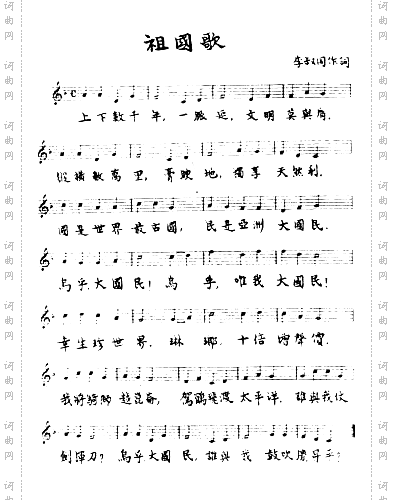 祖國歌
李叔同作詞
上下數千年,一脈延,文明莫與肩.
縱橫數萬里,膏腴地,獨享天然利.
國是世界最古國,民是亞洲大國民.
烏乎大國民!烏乎,唯我大國民!
幸生珍世界.琳瑯十倍增聲價.
我將騎獅越崑崙,駕鶴飛渡太平洋.誰與我仗
劍揮刀?烏乎大國民,誰與我鼓吹慶昇平?
词曲网
词曲网
词曲网
词曲网
词曲网
词曲网